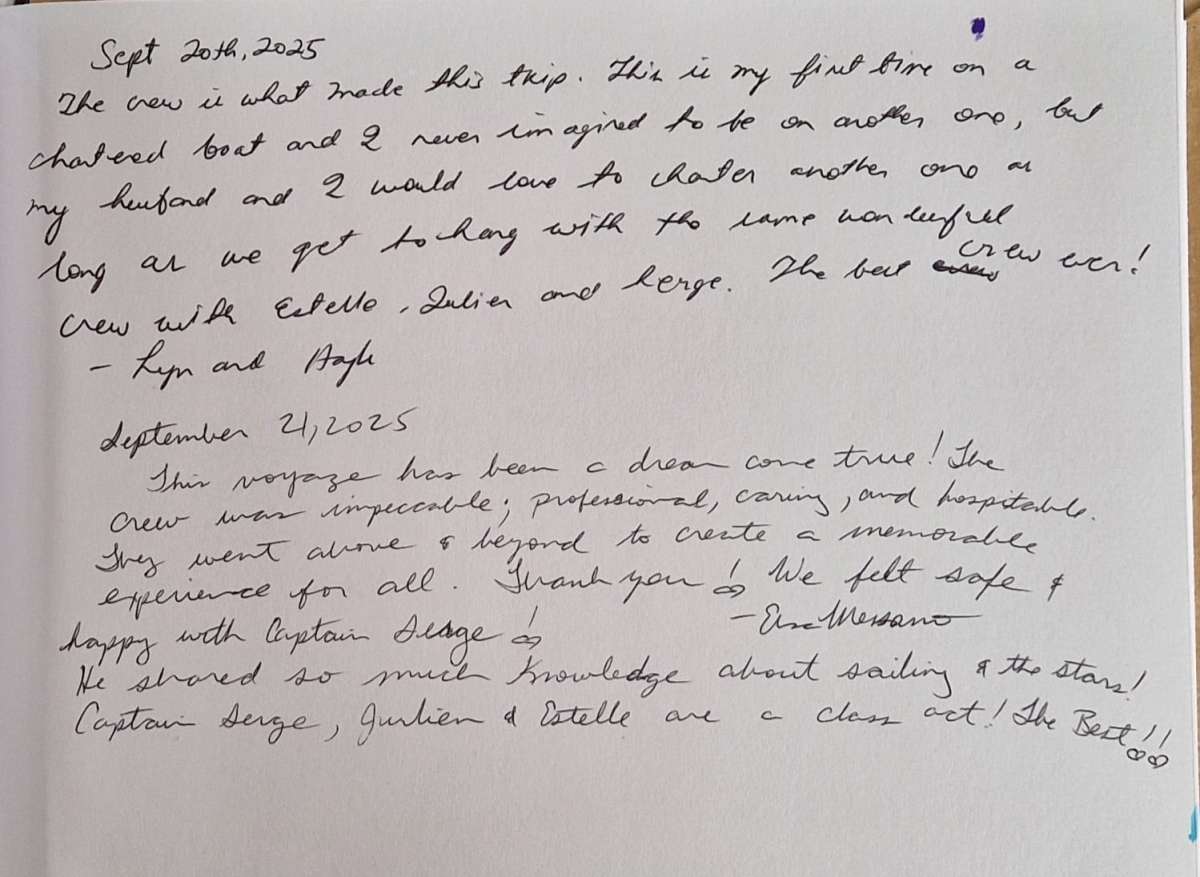 Sept 20th, 2025
The crew is what made this trip. This is my first time on a
chartered boat and I never imagined to be on another one, but
my husband and I would love to charter another one as
long as we get to hang with the same wonderful
crew with Estelle, Julien and Serge. The best crew ever!
- Lyn and
September 21, 2025
This voyage has been a dream come true! The
crew was impeccable; professional, caring, and hospitable.
They went above & beyond to create a memorable
experience for all. Thank you! We felt safe &
happy with Captain Serge!
He shared so much knowledge about sailing & the stars!
Captain Serge, Jurlien & Estelle are a class act! The Best!!